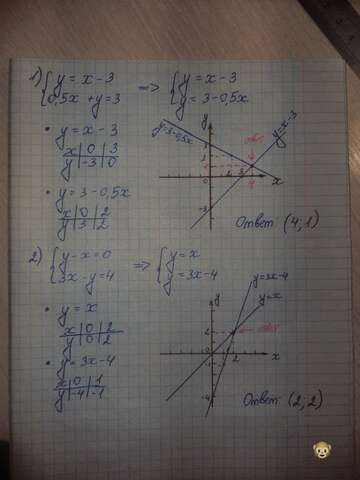 1) { y = x - 3
0,5x + y = 3 => { y = x - 3
y = 3 - 0,5x
• y = x - 3
x | 0 | 3
y | -3 | 0
• y = 3 - 0,5x
x | 0 | 2
y | 3 | 2
y = 3 - 0,5x
y = x - 3
y
3
2
1
0
1
3
4
x
-3
Ответ (4; 1)
2) { y - x = 0
3x - y = 4 => { y = x
y = 3x - 4
• y = x
x | 0 | 2
y | 0 | 2
• y = 3x - 4
x | 0 | 1
y | -4 | -1
y = 3x - 4
y = x
y
2
0
2
x
-4
Ответ (2; 2)